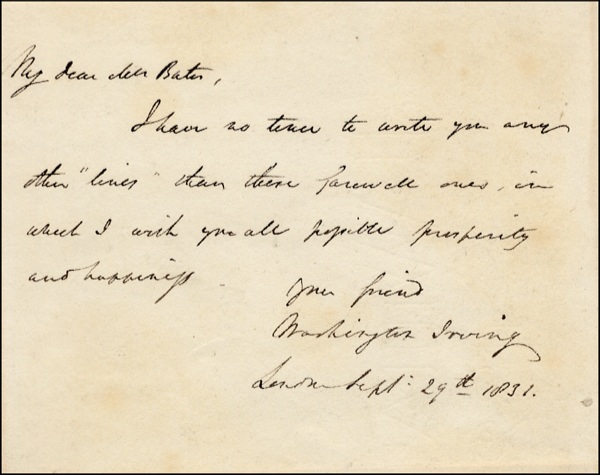 My dear Mrs Bates,
I have no time to write you any
other "lines" than these farewell ones, in
which I wish you all possible prosperity
and happiness
Your friend
Washington Irving
London Sept: 29th 1831.